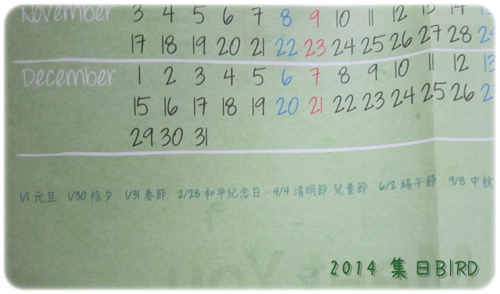 November 3 4 5 6 7 8 9 10 11 12 13 14
17 18 19 20 21 22 23 24 25 26 27 28
December 1 2 3 4 5 6 7 8 9 10 11 12 13
15 16 17 18 19 20 21 22 23 24 25 26
29 30 31
1/1 元旦 1/30 除夕 1/31 春節 2/28 和平紀念日 4/4 清明節 兒童節 6/2 端午節 9/8 中秋
2014 集日BIRD